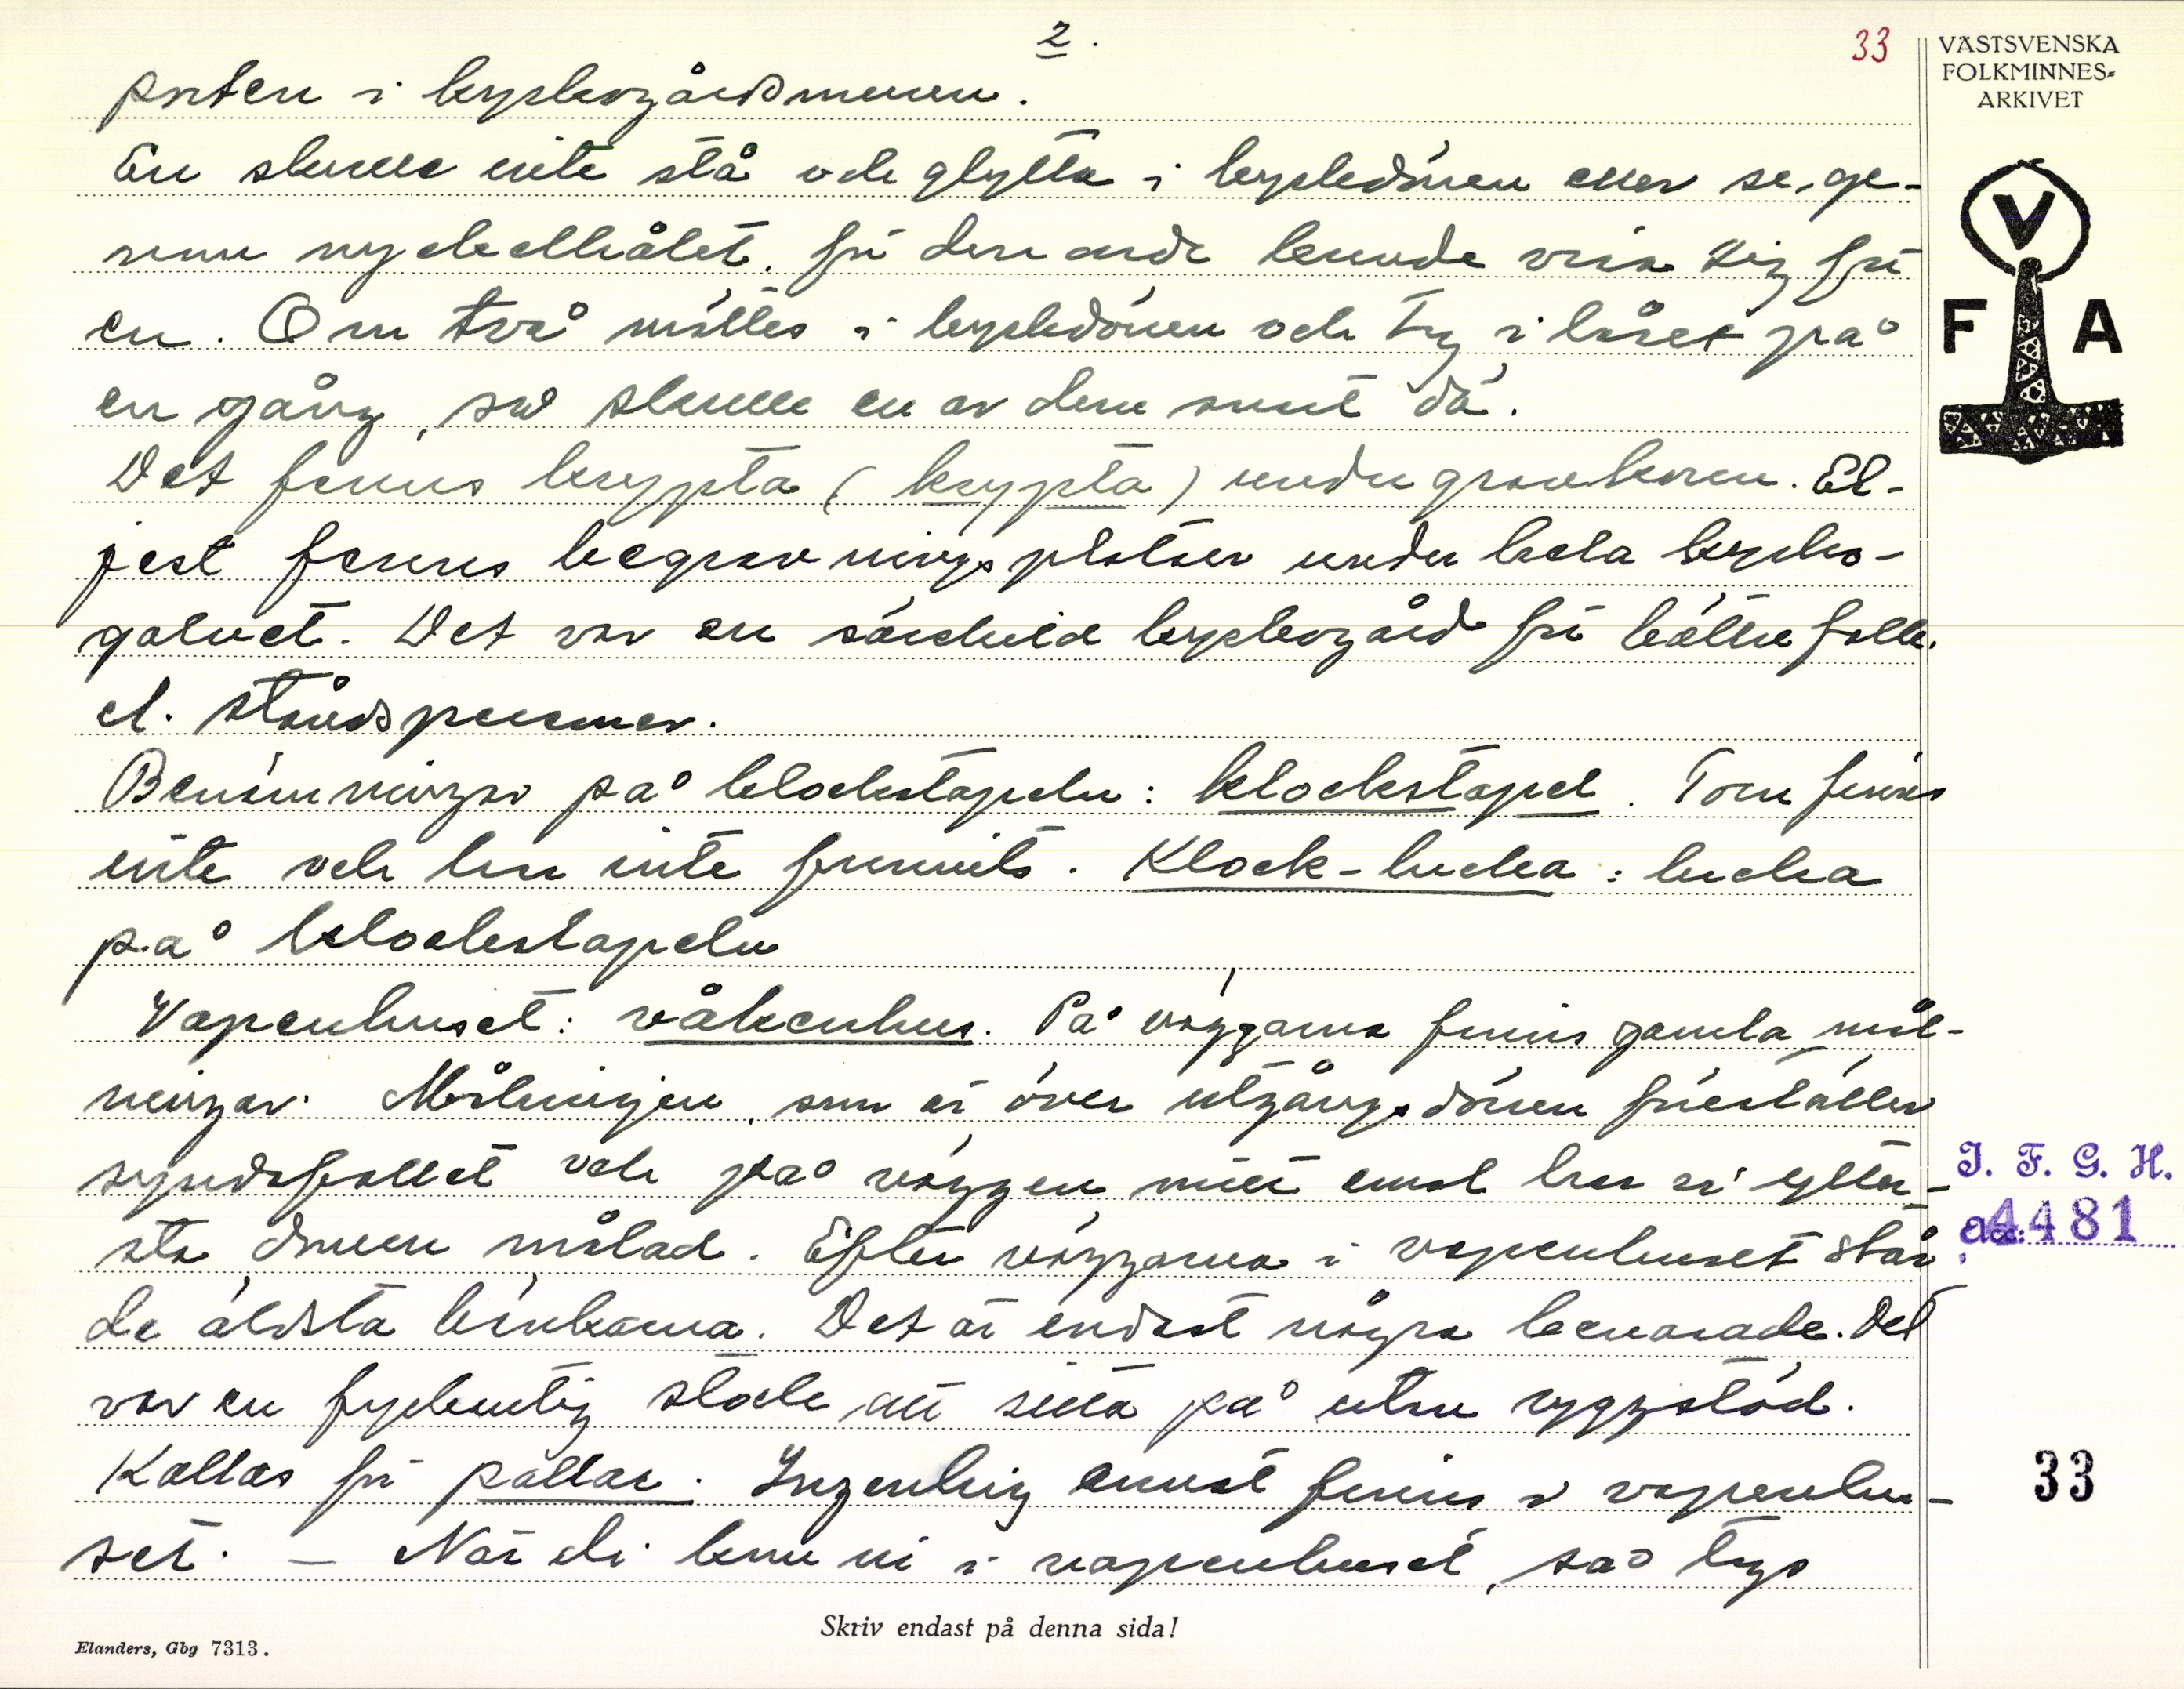 2.
33
VÄSTSVENSKA
FOLKMINNES-
ARKIVET
porten i kyrkogårdsmuren.
En skulle inte stå och glytta i kyrkedörren eller se ge-
nom nyckelhålet, för den onde kunde visa sig för
en. Om två möttes i kyrkdörren och tog i låset på
en gång, så skulle en av dem snart dö.
Det finns krypta (krypta) under gravkoren. El-
jest fanns begravningsplatser under hela kyrko-
golvet. Det var en särskild kyrkogård för bättre folk
el. ståndspersoner.
Benämningar på klockstapeln: klockstapel. Torn finns
inte och har inte funnits. Klock-lucka: lucka
på klockstapeln
Vapenhuset: våkenhus. På väggarna finns gamla mål-
ningar. Målningen, som är över utgångsdörren föreställer
syndafallet och på väggen mitt emot har är ytter-
sta domen målad. Efter väggarna i vapenhuset står
de äldsta bänkarna. Det är endast några bevarade. Det
var en fyrkantig stock att sitta på utan ryggstöd.
Kallas för pallar. Ingenting annat finns i vapenhu-
set. — När di kom in i vapenhuset, så togs
V
F A
I. F. G. H.
4481
33
Skriv endast på denna sida!
Elanders, Gbg 7313.